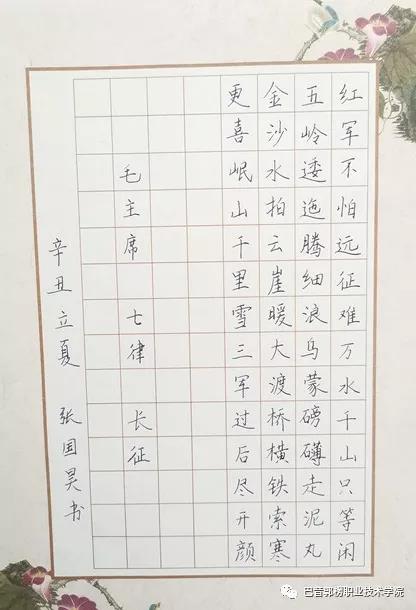 红军不怕远征难万水千山只等闲
五岭逶迤腾细浪乌蒙磅礴走泥丸
金沙水拍云崖暖大渡桥横铁索寒
更喜岷山千里雪三军过后尽开颜
毛主席 七律 长征
辛丑立夏 张国昊书
巴音郭楞职业技术学院